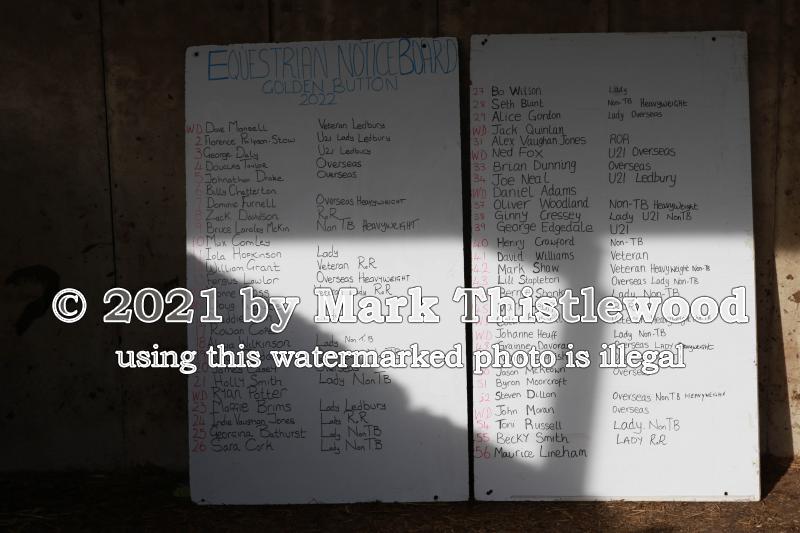 EQUESTRIAN NOTICE BOARD
GOLDEN BUTTON
2022
WD Dave Mansell Veteran Ledbury
2 Florence Ralpson-Stow U21 Lady Ledbury
3 George Daly U21 Ledbury
4 Douglas Taylor Overseas
5 Johnathan Drake Overseas
6 Billy Chatterton
7 Dominic Furnell Overseas Heavyweight
8 Zack Davidson R.R
9 Bruce Langley McKim Non TB Heavyweight
10 Max Comley
Iola Hopkinson Lady
William Grant Veteran R.R
Fergus Lawlor Overseas Heavyweight
17 Rowan
18
21 Holly Smith Lady Non TB
WD Ryan Potter
23 Maggie Brims Lady Ledbury
24 India Vaughan Jones Lady R.R
25 Georgina Bathurst Lady Non TB
26 Sara Cork Lady Non TB
27 Bo Wilson Lady
28 Seth Blunt Non-TB Heavyweight
29 Alice Gordon Lady Overseas
WD Jack Quinlan
31 Alex Vaughan Jones ROR
WD Ned Fox U21 Overseas
33 Brian Dunning Overseas
34 Joe Neal U21 Ledbury
WD Daniel Adams
37 Oliver Woodland Non-TB Heavyweight
38 Ginny Cressey Lady U21 NonTB
39 George Edgedale U21
40 Henry Crawford Non-TB
41 David Williams Veteran
42 Mark Shaw Veteran Heavyweight Non-TB
43 Lill Stapleton Overseas Lady Non-TB
Lady Non-TB
© 2021 by Mark Thistlewood
WD Johanne Heuff Lady Non-TB
48 Overseas Lady Heavyweight
using this watermarked photo is illegal
Jason McKeown Overseas
51 Byron Moorcroft
52 Steven Dillon Overseas Non TB Heavyweight
WD John Moran Overseas
54 Toni Russell Lady. Non TB
55 Becky Smith Lady R.R
56 Maurice Lineham